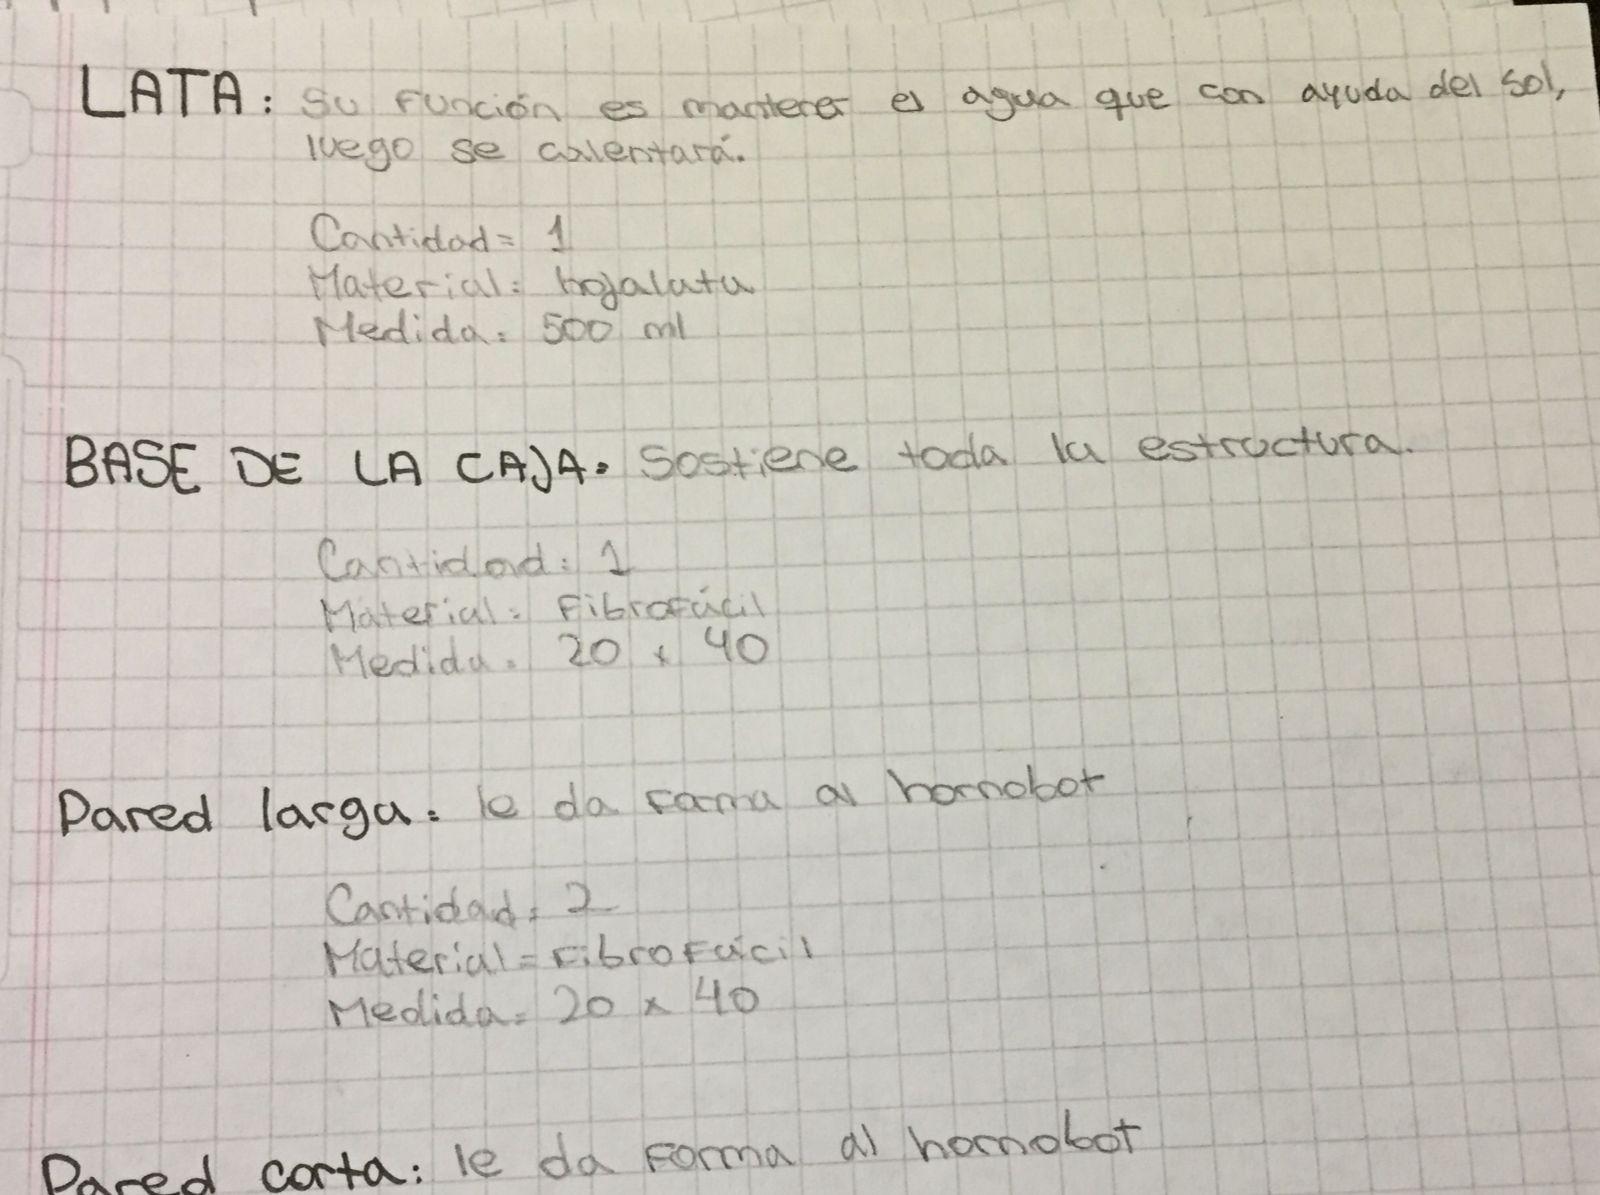 LATA: Su función es mantener el agua que con ayuda del sol,
luego se calentará.
Cantidad= 1
Material: hojalata
Medida: 500 ml
BASE DE LA CAJA: Sostiene toda la estructura.
Cantidad: 1
Material: Fibrofácil
Medida: 20 x 40
Pared larga: le da forma al hornobot
Cantidad: 2
Material= Fibrofácil
Medida= 20 x 40
Pared corta: le da forma al hornobot